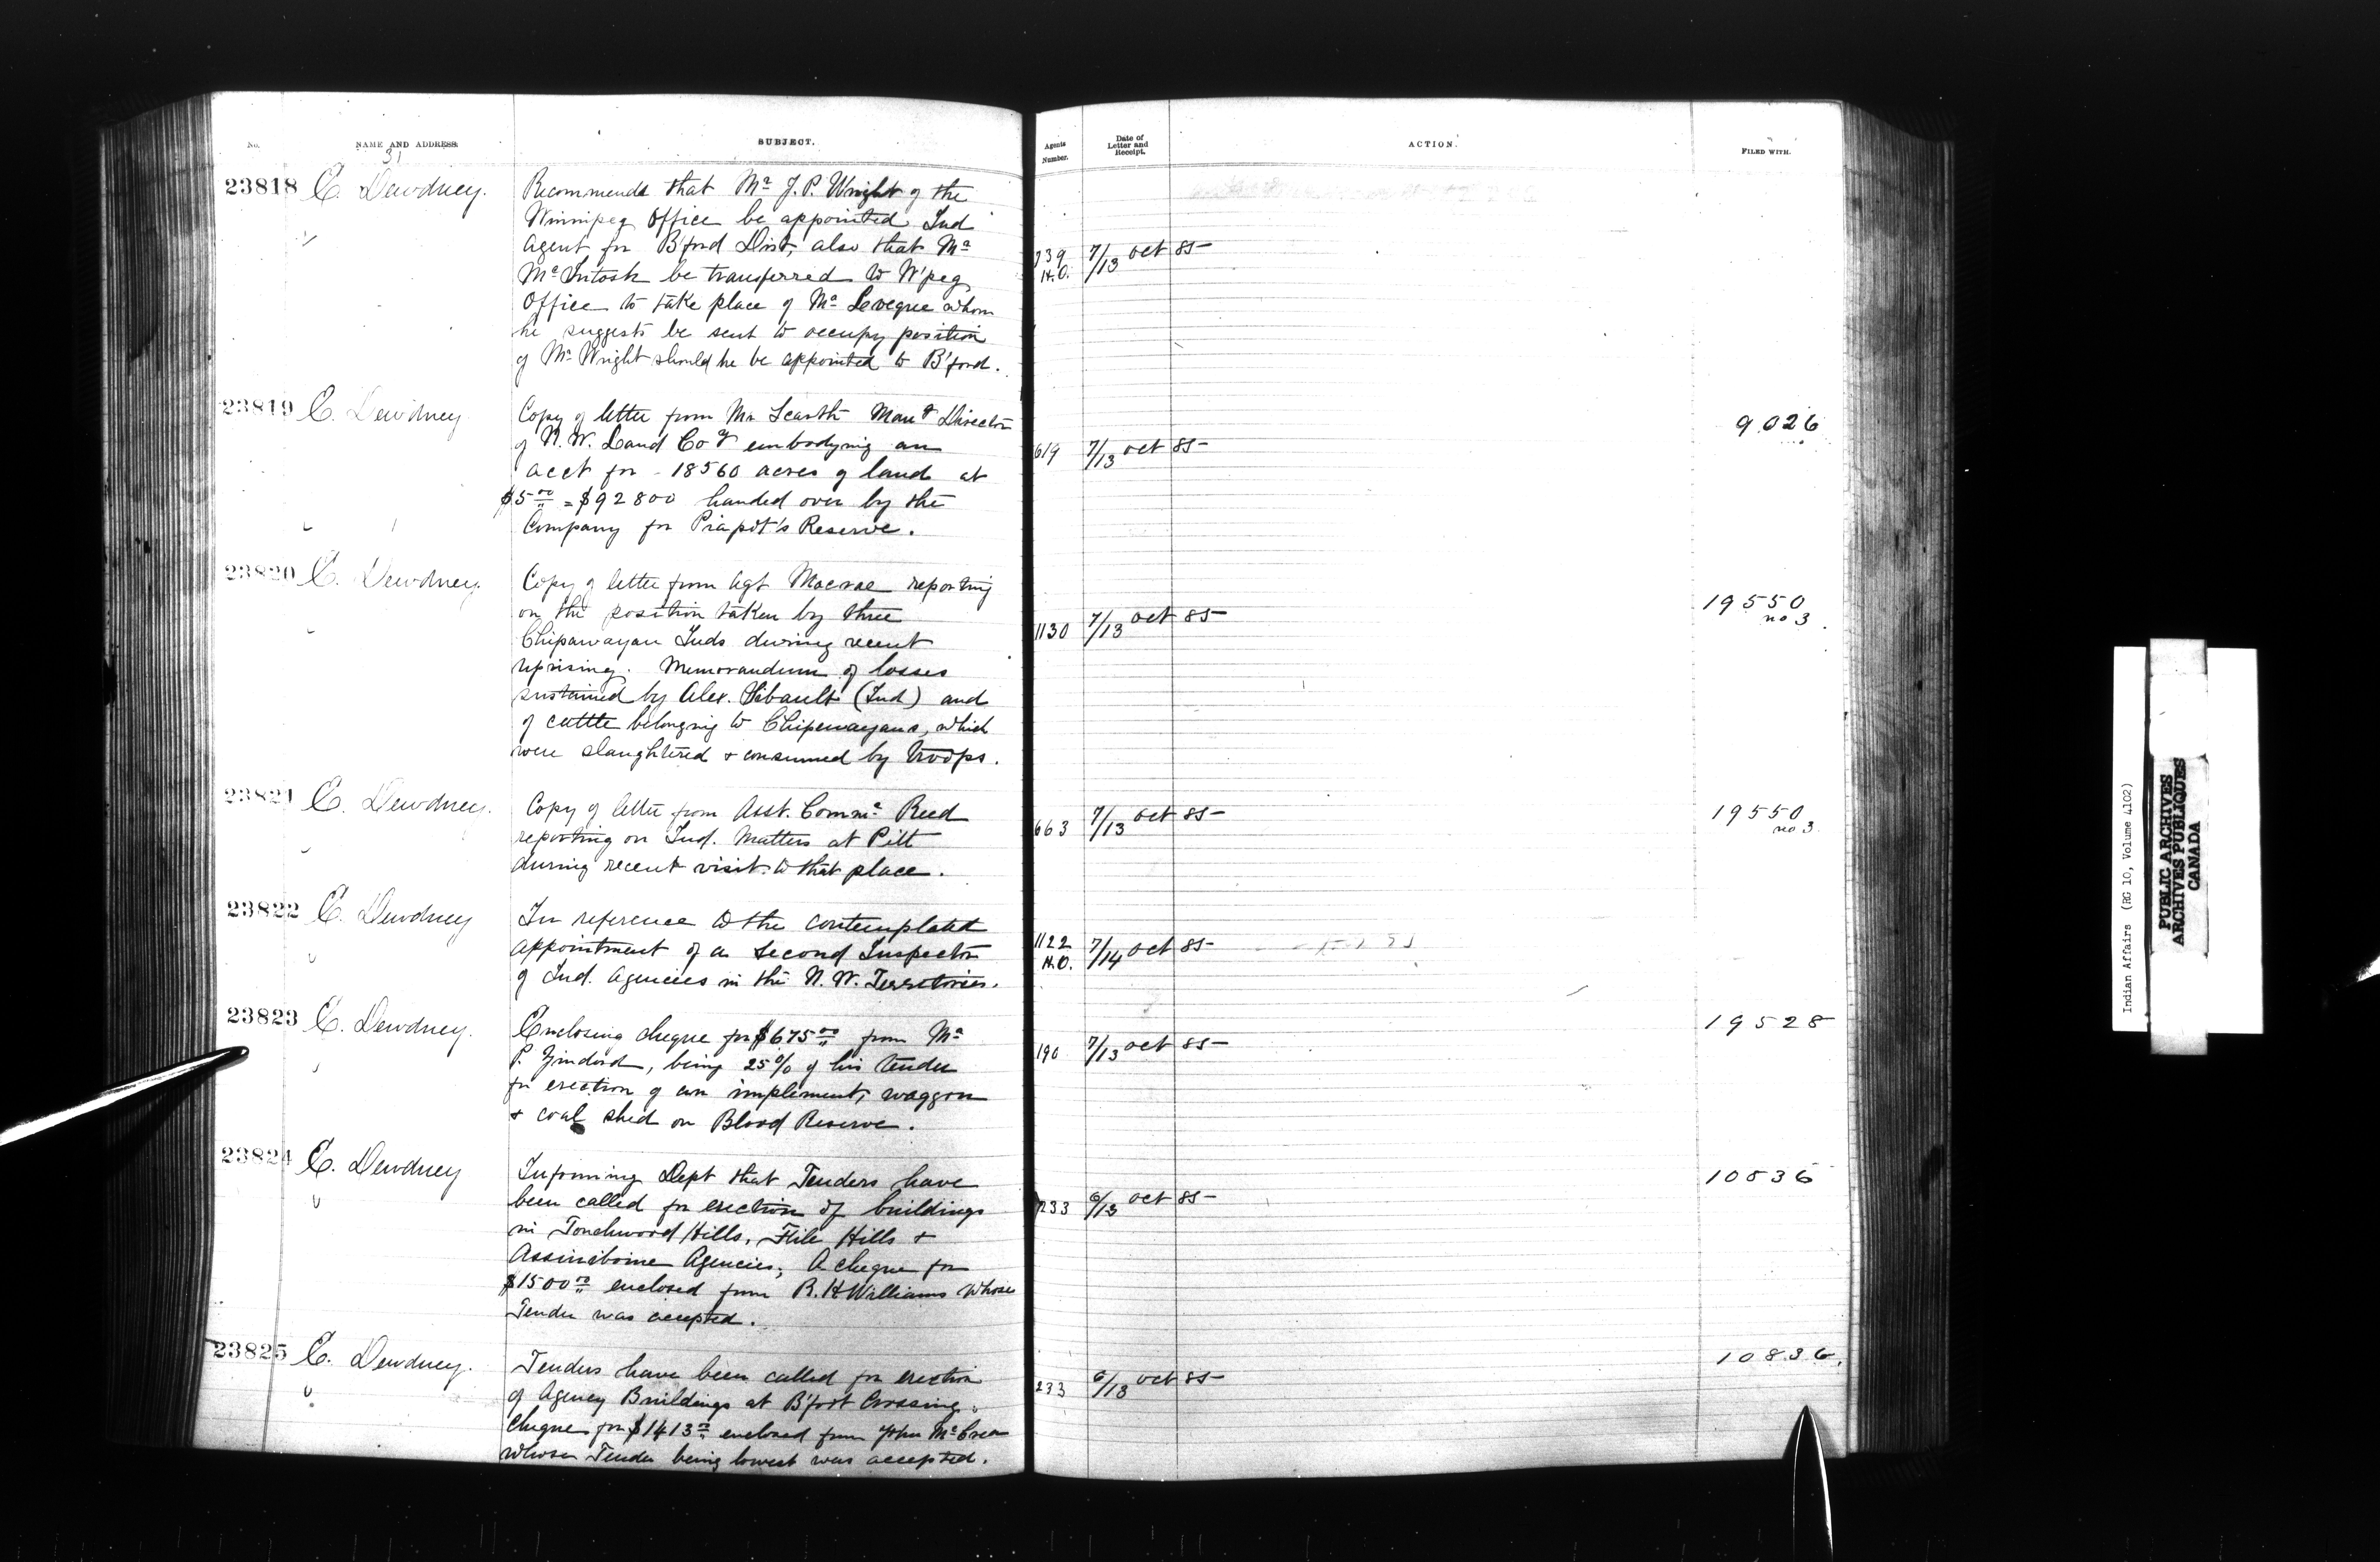 No.
NAME AND ADDRESS.
SUBJECT.
Agents Number.
Date of Letter and Receipt.
ACTION.
FILED WITH.
31
23818 E. Dewdney.
Recommends that Mr J. P. Wright of the
Winnipeg Office be appointed Ind
Agent for B'ford Dist, also that Mr
McIntosh be transferred to W'peg
Office to take place of Mr Leveque whom
he suggests be sent to occupy position
of Mr Wright should he be appointed to B'ford.
739
H.O.
7/13 Oct 85
23819 E. Dewdney
Copy of letter from Mr Scarth Mang Director
of N.W. Land Coy embodying an
acct for 18560 acres of land at
$5.00 = $92800 handed over by the
Company for Piapot's Reserve.
619
7/13 Oct 85
9026
23820 E. Dewdney.
Copy of letter from Agt Macrae reporting
on the position taken by three
Chipawayan Inds during recent
uprising. Memorandum of losses
sustained by Alex. Tibault (Ind) and
of cattle belonging to Chipewayans, which
were slaughtered & consumed by troops.
1130
7/13 Oct 85
19550
no 3
23821 E. Dewdney.
Copy of letter from Asst. Commr Reed
reporting on Ind. Matters at Pitt
during recent visit to that place.
663
7/13 Oct 85
19550
no 3
23822 E. Dewdney
In reference to the contemplated
appointment of a Second Inspector
of Ind. Agencies in the N. W. Territories.
1122
H.O.
7/14 Oct 85
23823 E. Dewdney.
Enclosing cheque for $675.00 from Mr
P. , being 25% of his tender
for erection of an impliment, waggon
& coal shed on Blood Reserve.
190
7/13 Oct 85
19528
23824 E. Dewdney
Informing Dept that Tenders have
been called for erection of buildings
in Touchwood Hills, File Hills &
Assiniboine Agencies; A cheque for
$1500.00 enclosed from R. H Williams whose
Tender was accepted.
233
6/13 Oct 85
10836
23825 E. Dewdney.
Tenders have been called for erection
of Agency Buildings at B'foot Crossing.
Cheque for $1413.00 enclosed from John McCrea
whose Tender being lowest was accepted.
233
6/13 Oct 85
10836.
Indian Affairs (RG 10, Volume 4102)
PUBLIC ARCHIVES
ARCHIVES PUBLIQUES
CANADA